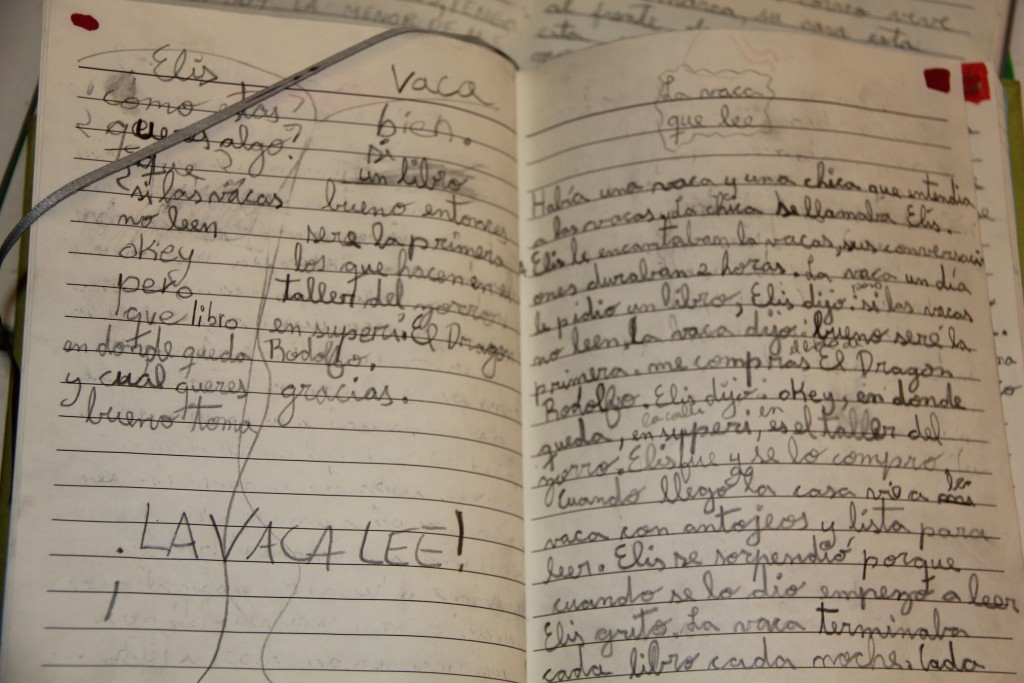 Elis
vaca
como estas
bien.
¿queres algo?
si
¿que
un libro
si las vacas
no leen
bueno entonces
sere la primera
okey
los que hacen en el
pero
taller del gorro
que libro
en superi. El Dragon
en donde queda
Rodolfo.
y cual queres
gracias.
bueno toma
.LA VACA LEE!
La vaca
que lee
Había una vaca y una chica que intendia
a las vacas, La chica se llamaba Elis.
Elis le encantaban la vacas, sus conversaci
ones duraban 2 horas. La vaca un día
le pidio un libro, Elis dijo: si las vacas
no leen, la vaca dijo: bueno seré la
primera. me compras El Dragon
Rodolfo. Elis dijo: okey, en donde
la calle en
queda, en syperi, es el taller del
gorro. Elis fue y se lo compro,
Cuando llegó a la casa vio a la
vaca con antojeos y lista para
leer. Elis se sorpendió porque
cuando se lo dio empezó a leer
Elis grito. La vaca terminaba
cada libro cada noche. Cada